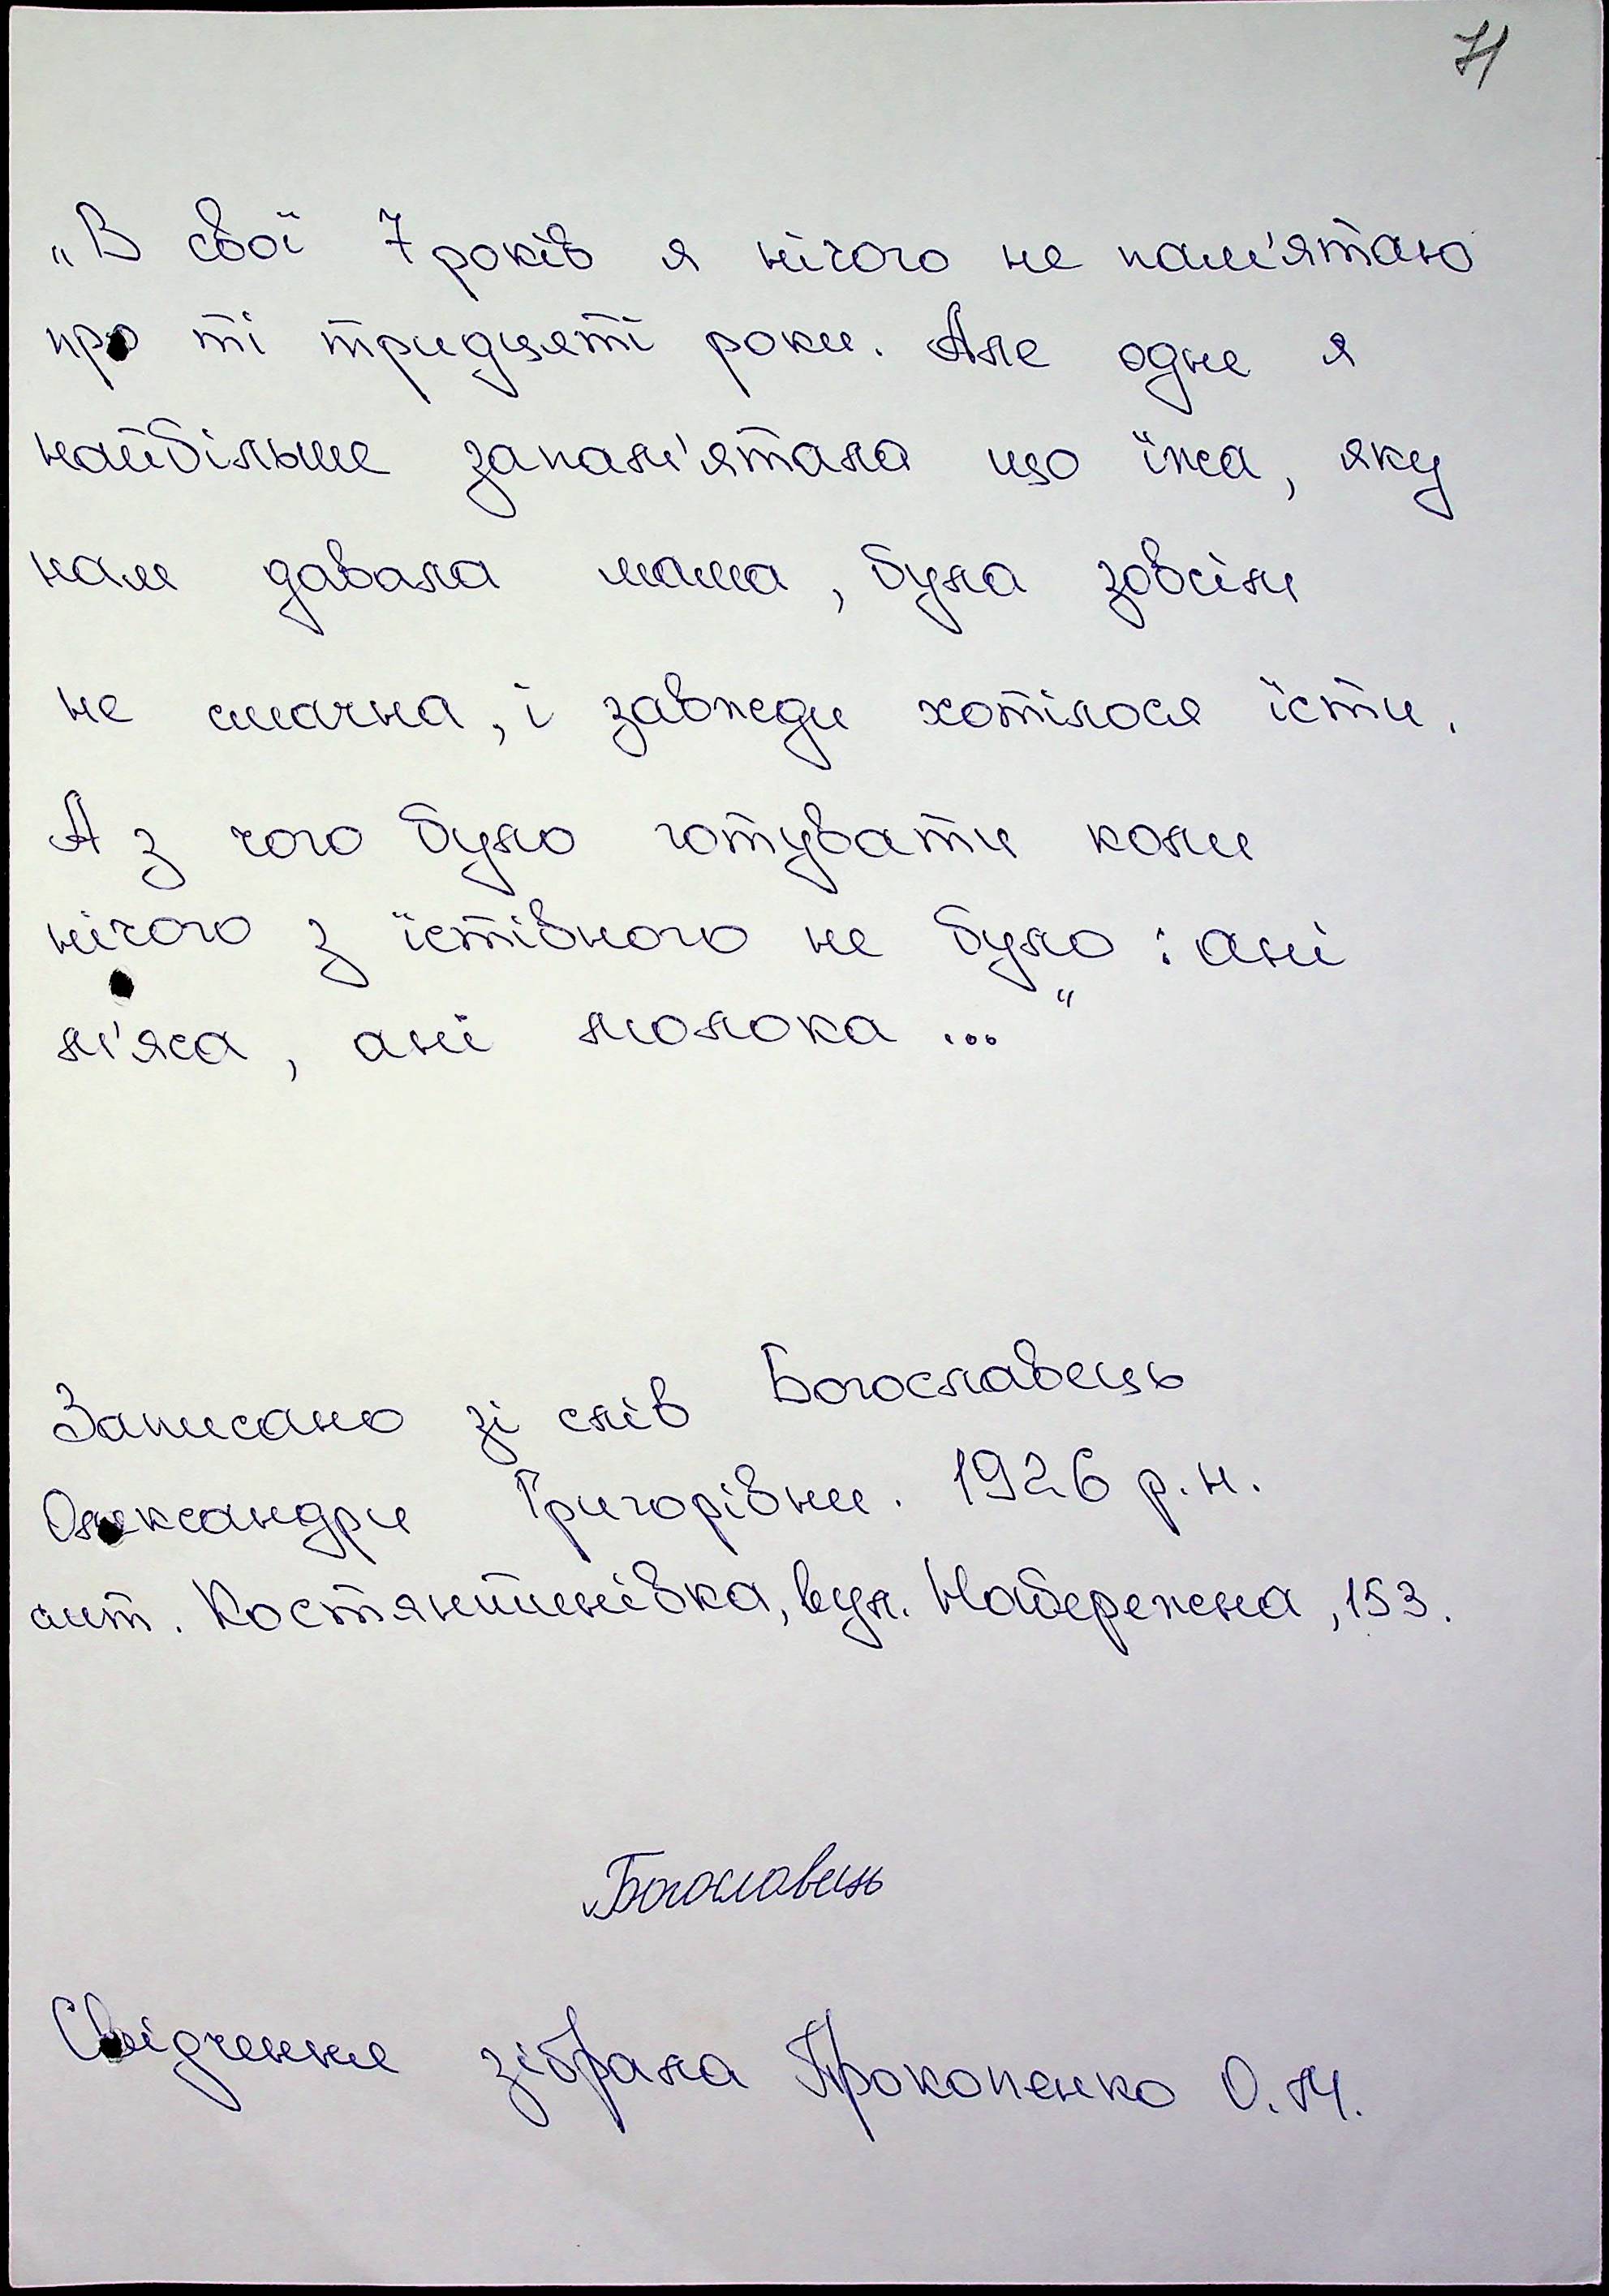 71
„В свої 7 років я нічого не пам'ятаю
про ті тридцяті роки. Але одне я
найбільше запам'ятала що їжа, яку
нам давала мама, була зовсім
не смачна, і завжди хотілося їсти.
А з чого було готувати коли
нічого з їстівного не було: ані
м'яса, ані молока..."
Записано зі слів Богославець
Олександри Григорівни. 1926 р.н.
смт. Костянтинівка, вул. Набережна, 153.
Богославець
Свідчення зібрала Прокопенко О.М.